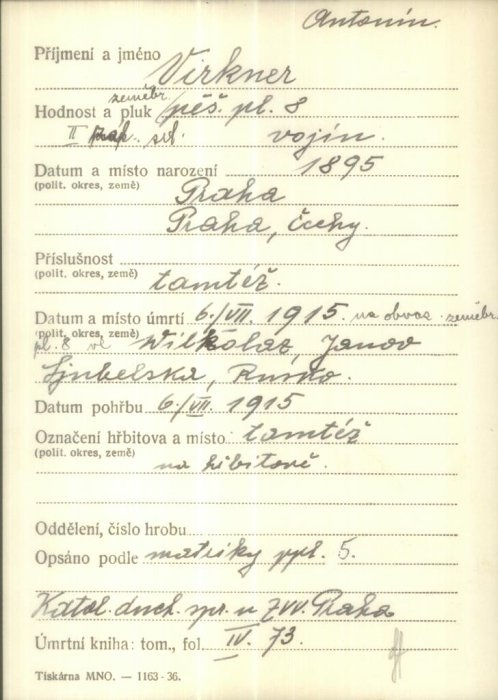 Antonín.
Příjmení a jméno Virkner
zeměbr.
Hodnost a pluk pěš. pl. 8
II vojín.
Datum a místo narození 1895
(polit. okres, země) Praha
Praha, Čechy.
Příslušnost
(polit. okres, země) tamtéž.
Datum a místo úmrtí 6./VII. 1915. na obvaz. zeměbr.
(polit. okres, země) pl. 8 Wilkolaz, Janov
Ljubelska, Rusko.
Datum pohřbu 6./VII. 1915
Označení hřbitova a místo tamtéž
(polit. okres, země) na hřbitově.
Oddělení, číslo hrobu
Opsáno podle matriky ppl. 5.
Katol. duch. spr. u ZVV. Praha
Úmrtní kniha: tom., fol. IV. 73.
Tiskárna MNO. — 1163-36.